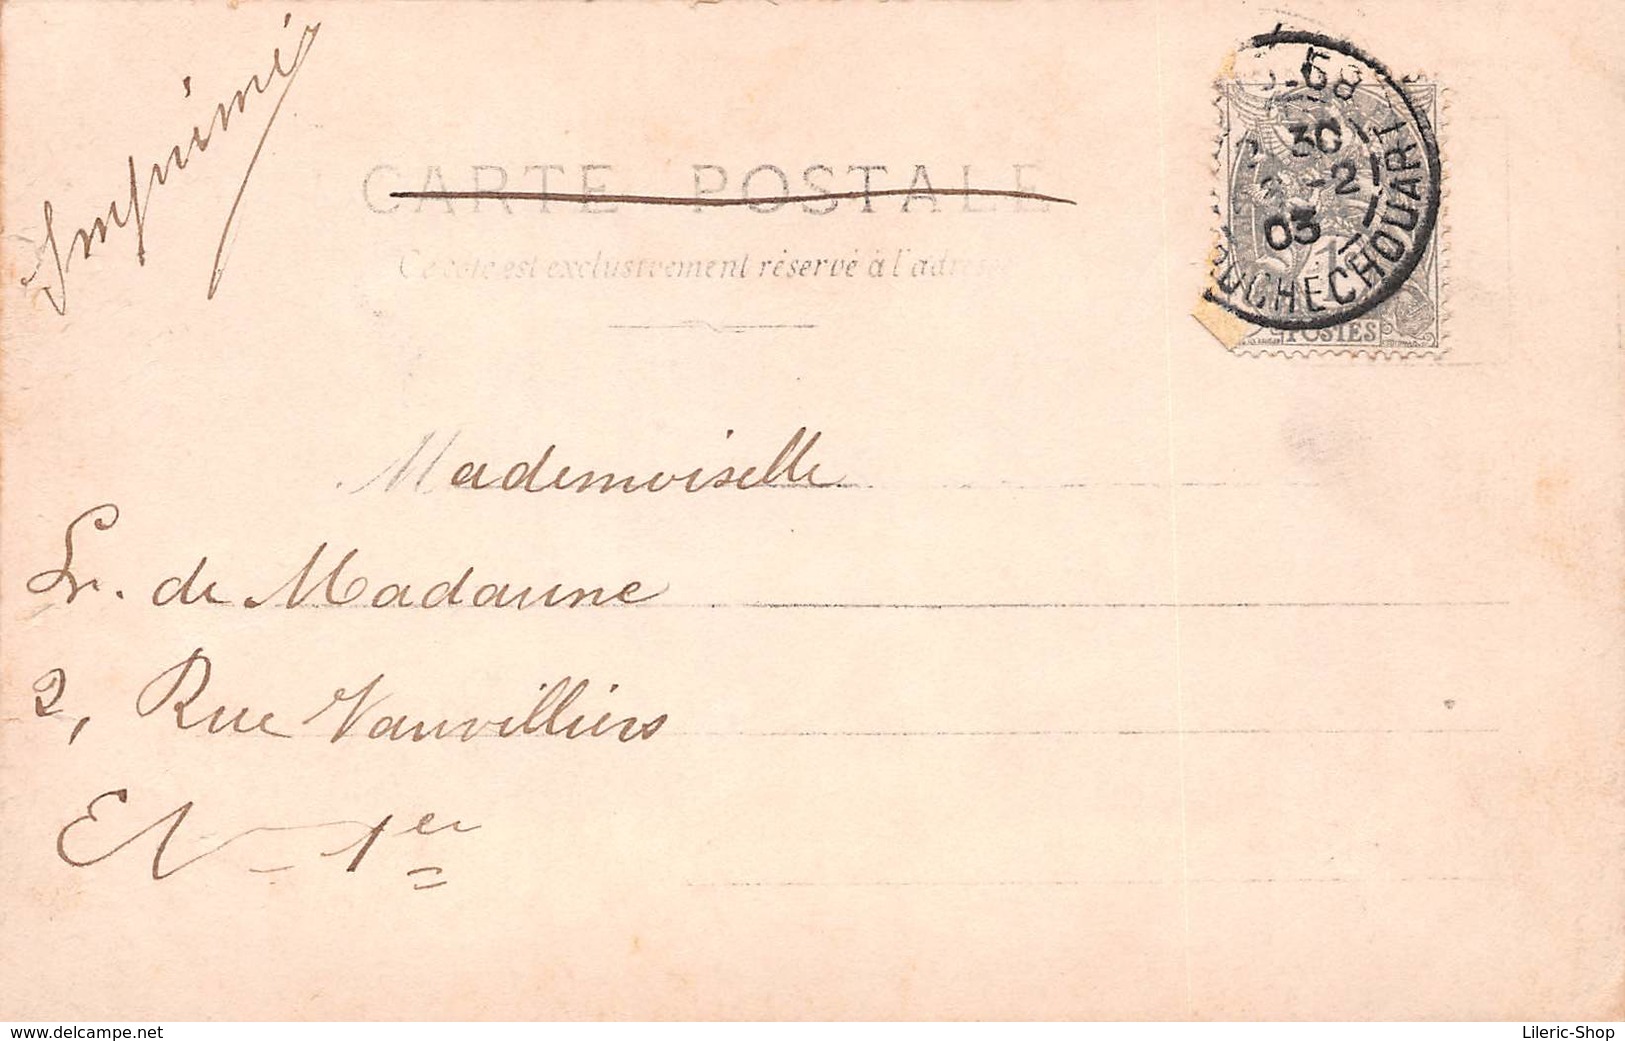 Imprimé
CARTE POSTALE
Ce côté est exclusivement réservé à l'adresse
58
30
-2
03
ROCHECHOUART
POSTES
Mademoiselle
L. de Madaune
2, Rue Vauvilliers
EV 1er
www.delcampe.net
Lileric-Shop